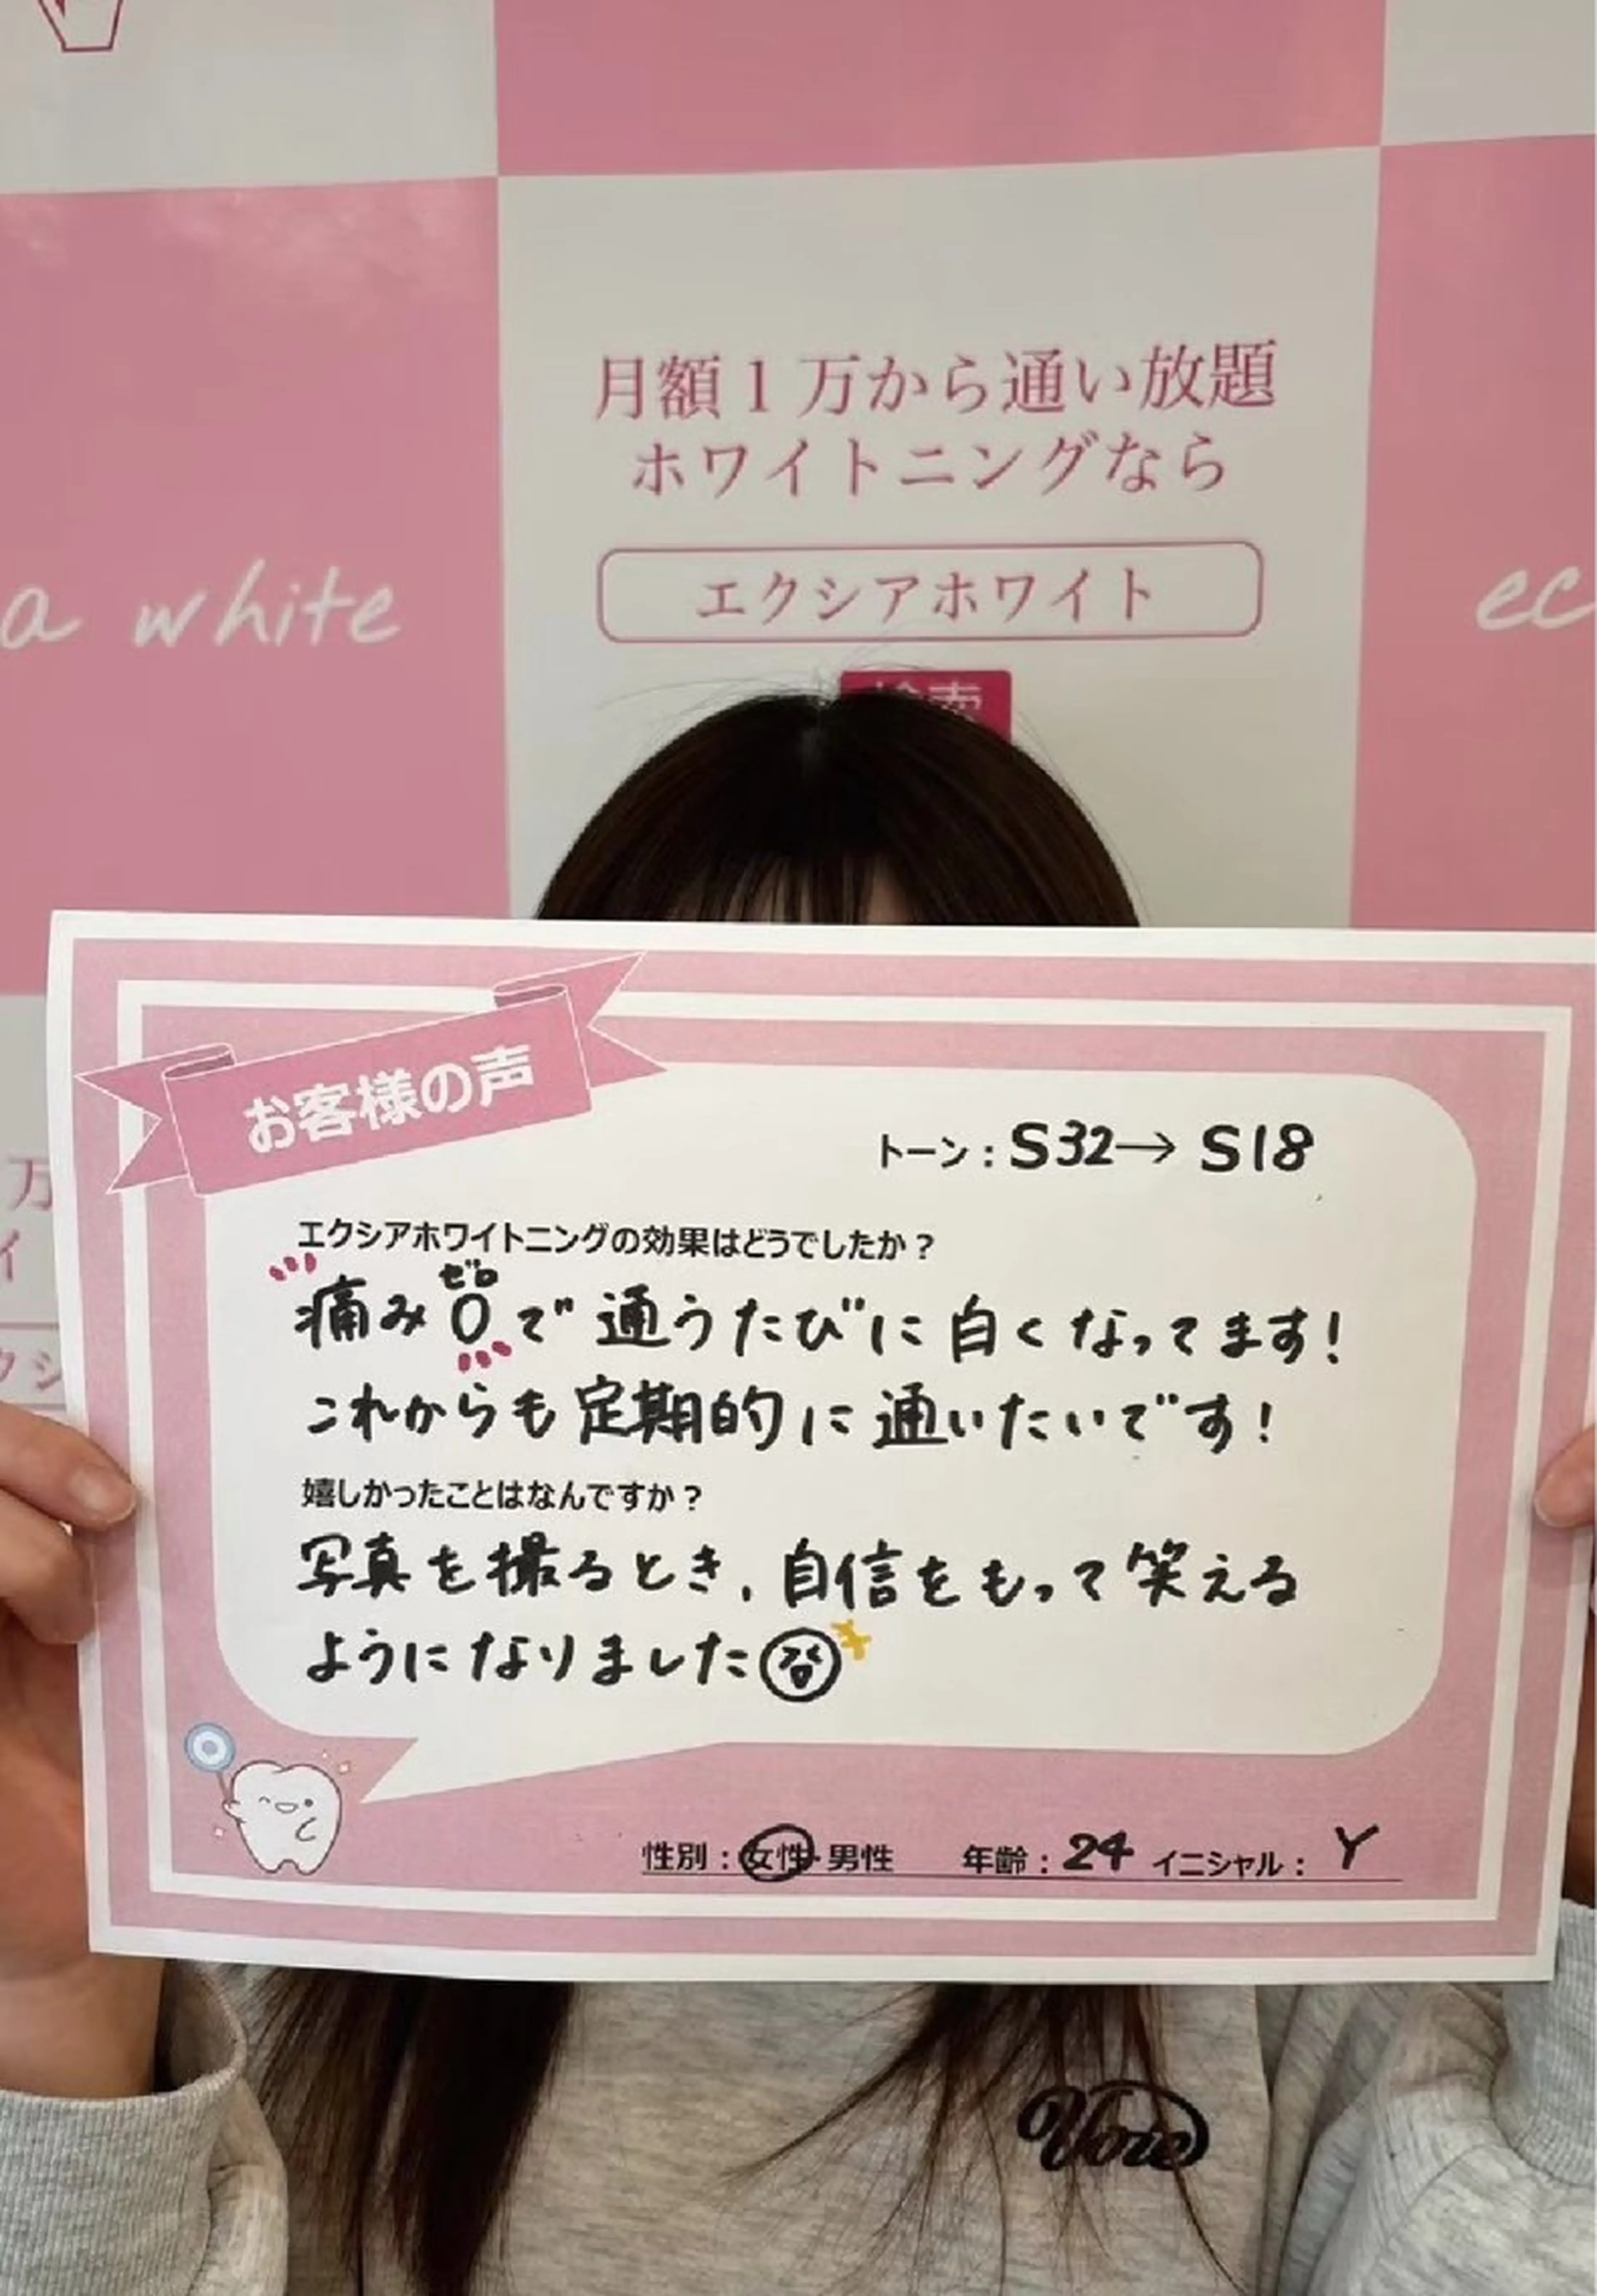 月額1万から通い放題
ホワイトニングなら
エクシアホワイト
検索
a white
ec
万
イ
クシ
お客様の声
トーン：S32→S18
エクシアホワイトニングの効果はどうでしたか？
ゼロ
痛み0で通うたびに白くなってます！
これからも定期的に通いたいです！
嬉しかったことはなんですか？
写真を撮るとき、自信をもって笑える
ようになりました
性別：女性・男性 年齢：24 イニシャル：Y